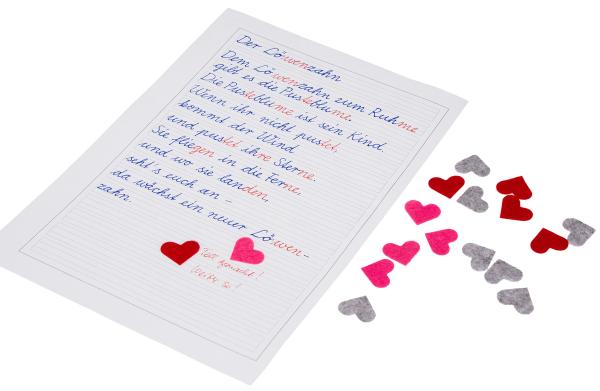 Der Löwenzahn
Dem Löwenzahn zum Ruhme
gibt es die Pusteblume.
Die Pusteblume ist sein Kind.
Wenn ihr nicht pustet,
kommt der Wind
und pustet ihre Sterne.
Sie fliegen in die Ferne,
und wo sie landen,
seht's euch an -
da wächst ein neuer Löwen-
zahn.
Toll gemacht!
Weiter so!